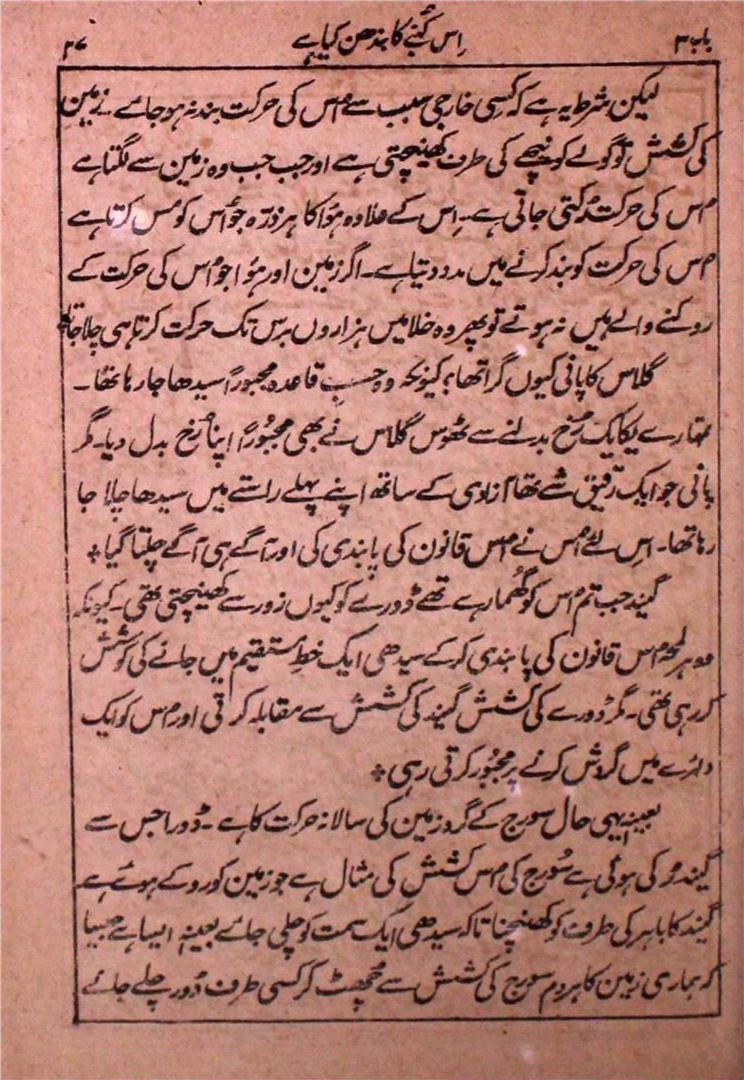 باب ۳ اِس کُنبے کا بندھن کیا ہے ۲۷
لیکن شرط یہ ہے کہ کسی خارجی سبب سے اُس کی حرکت بند نہ ہو جائے۔ زمین
کی کشش تو گولے کو نیچے کی طرف کھینچتی ہے اور جب جب وہ زمین سے لگتا ہے
اُس کی حرکت رُکتی جاتی ہے۔ اِس کے علاوہ ہَوا کا ہر ذرّہ جو اُس کو مس کرتا ہے
اُس کی حرکت کو بند کرنے میں مدد دیتا ہے۔ اگر زمین اور ہَوا جو اُس کی حرکت کے
روکنے والے ہیں نہ ہوتے تو پھر وہ خلا میں ہزاروں برس تک حرکت کرتا ہی چلا جاتا
گلاس کا پانی کیوں گرا تھا؟ کیونکہ وہ حسبِ قاعدہ مجبوراً سیدھا جا رہا تھا۔
تمہارے یکایک رُخ بدلنے سے ٹھوس گلاس نے بھی مجبُوراً اپنا رُخ بدل دیا۔ مگر
پانی جو ایک رقیق شے تھا آزادی کے ساتھ اپنے پہلے راستے میں سیدھا چلا جا
رہا تھا۔ اِس لئے اُس نے اُس قانون کی پابندی کی اور آگے ہی آگے چلتا گیا ٭
گیند جب تم اُس کو گُھما رہے تھے ڈورے کو کیوں زور سے کھینچتی تھی۔ کیونکہ
وہ ہر لمحہ اُس قانون کی پابندی کر کے سیدھی ایک خطِ مستقیم میں جانے کی کوشش
کر رہی تھی۔ مگر ڈورے کی کشش گیند کی کشش سے مقابلہ کرتی اور اُس کو ایک
دائرے میں گردش کرنے پر مجبُور کرتی رہی ٭
بعینہٖ یہی حال سورج کے گرد زمین کی سالانہ حرکت کا ہے۔ ڈورا جس سے
گیند رُکی ہوئی ہے سُورج کی اُس کشش کی مثال ہے جو زمین کو روکے ہوئے ہے
گیند کا باہر کی طرف کو کھنچنا تاکہ سیدھی ایک سمت کو چلی جائے بعینہٖ ایسا ہے جیسا
کہ ہماری زمین کا ہردم سورج کی کشش سے چُھٹ کر کسی طرف دُور چلے جائے